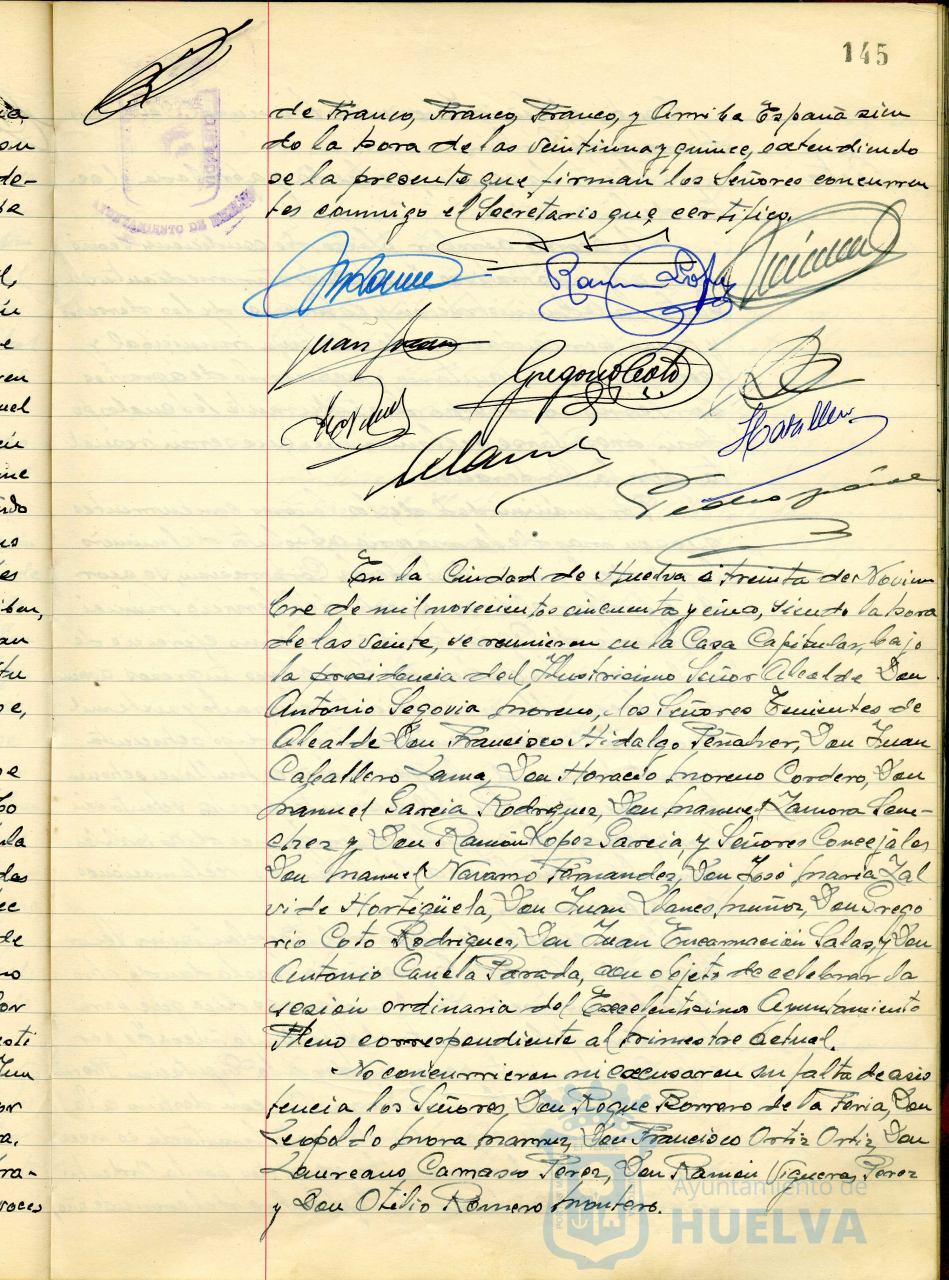 145
de Franco, Franco, Franco, y Arriba España sien
do la hora de las veintiuna y quince, extendiendo
se la presente que firman los Señores concurren
tes conmigo el Secretario que certifico.
Ramon Lopez
Juan
Gregorio Coto
En la Ciudad de Huelva a treinta de Noviem
bre de mil novecientos cincuenta y cinco, siendo la hora
de las veinte, se reunieron en la Casa Capitular, bajo
la presidencia del Ilustrisimo Señor Alcalde Don
Antonio Segovia Moreno, los Señores Tenientes de
Alcalde Don Francisco Hidalgo Peñalver, Don Juan
Caballero Lama, Don Horacio Moreno Cordero, Don
Manuel Garcia Rodriguez, Don Manuel Zamora San-
chez y Don Ramón Lopez Garcia, y Señores Concejales
Don Manuel Navarro Fernandez, Don José Maria Zal
vide Hortigüela, Don Juan Llanes Muñoz, Don Grego
rio Coto Rodriguez, Don Juan Encarnación Salas, y Don
Antonio Canela Parada, con objeto de celebrar la
sesión ordinaria del Excelentisimo Ayuntamiento
Pleno correspondiente al trimestre actual.
-No concurrieron ni excusaron su falta de asis
tencia los Señores, Don Roque Borrero de la Feria, Don
Leopoldo Mora Don Francisco Ortiz Ortiz, Don
Laureano Carrasco Perez, Don Ramón Vigueras Perez
y Don Otilio Romero Montero.
Ayuntamiento de
HUELVA